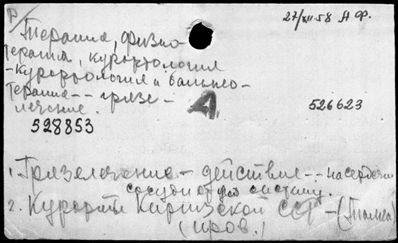 27/XII 58 А Ф.
Терапия, физио-
терапия, курортология
-курортология и бальнео-
терапия -- грязе-
лечение.
А.
526623
528853
1. Грязелечение - действие -- на сердечно
сосудистую систему.
2. Курорты Киргизской ССР -
(пров.)